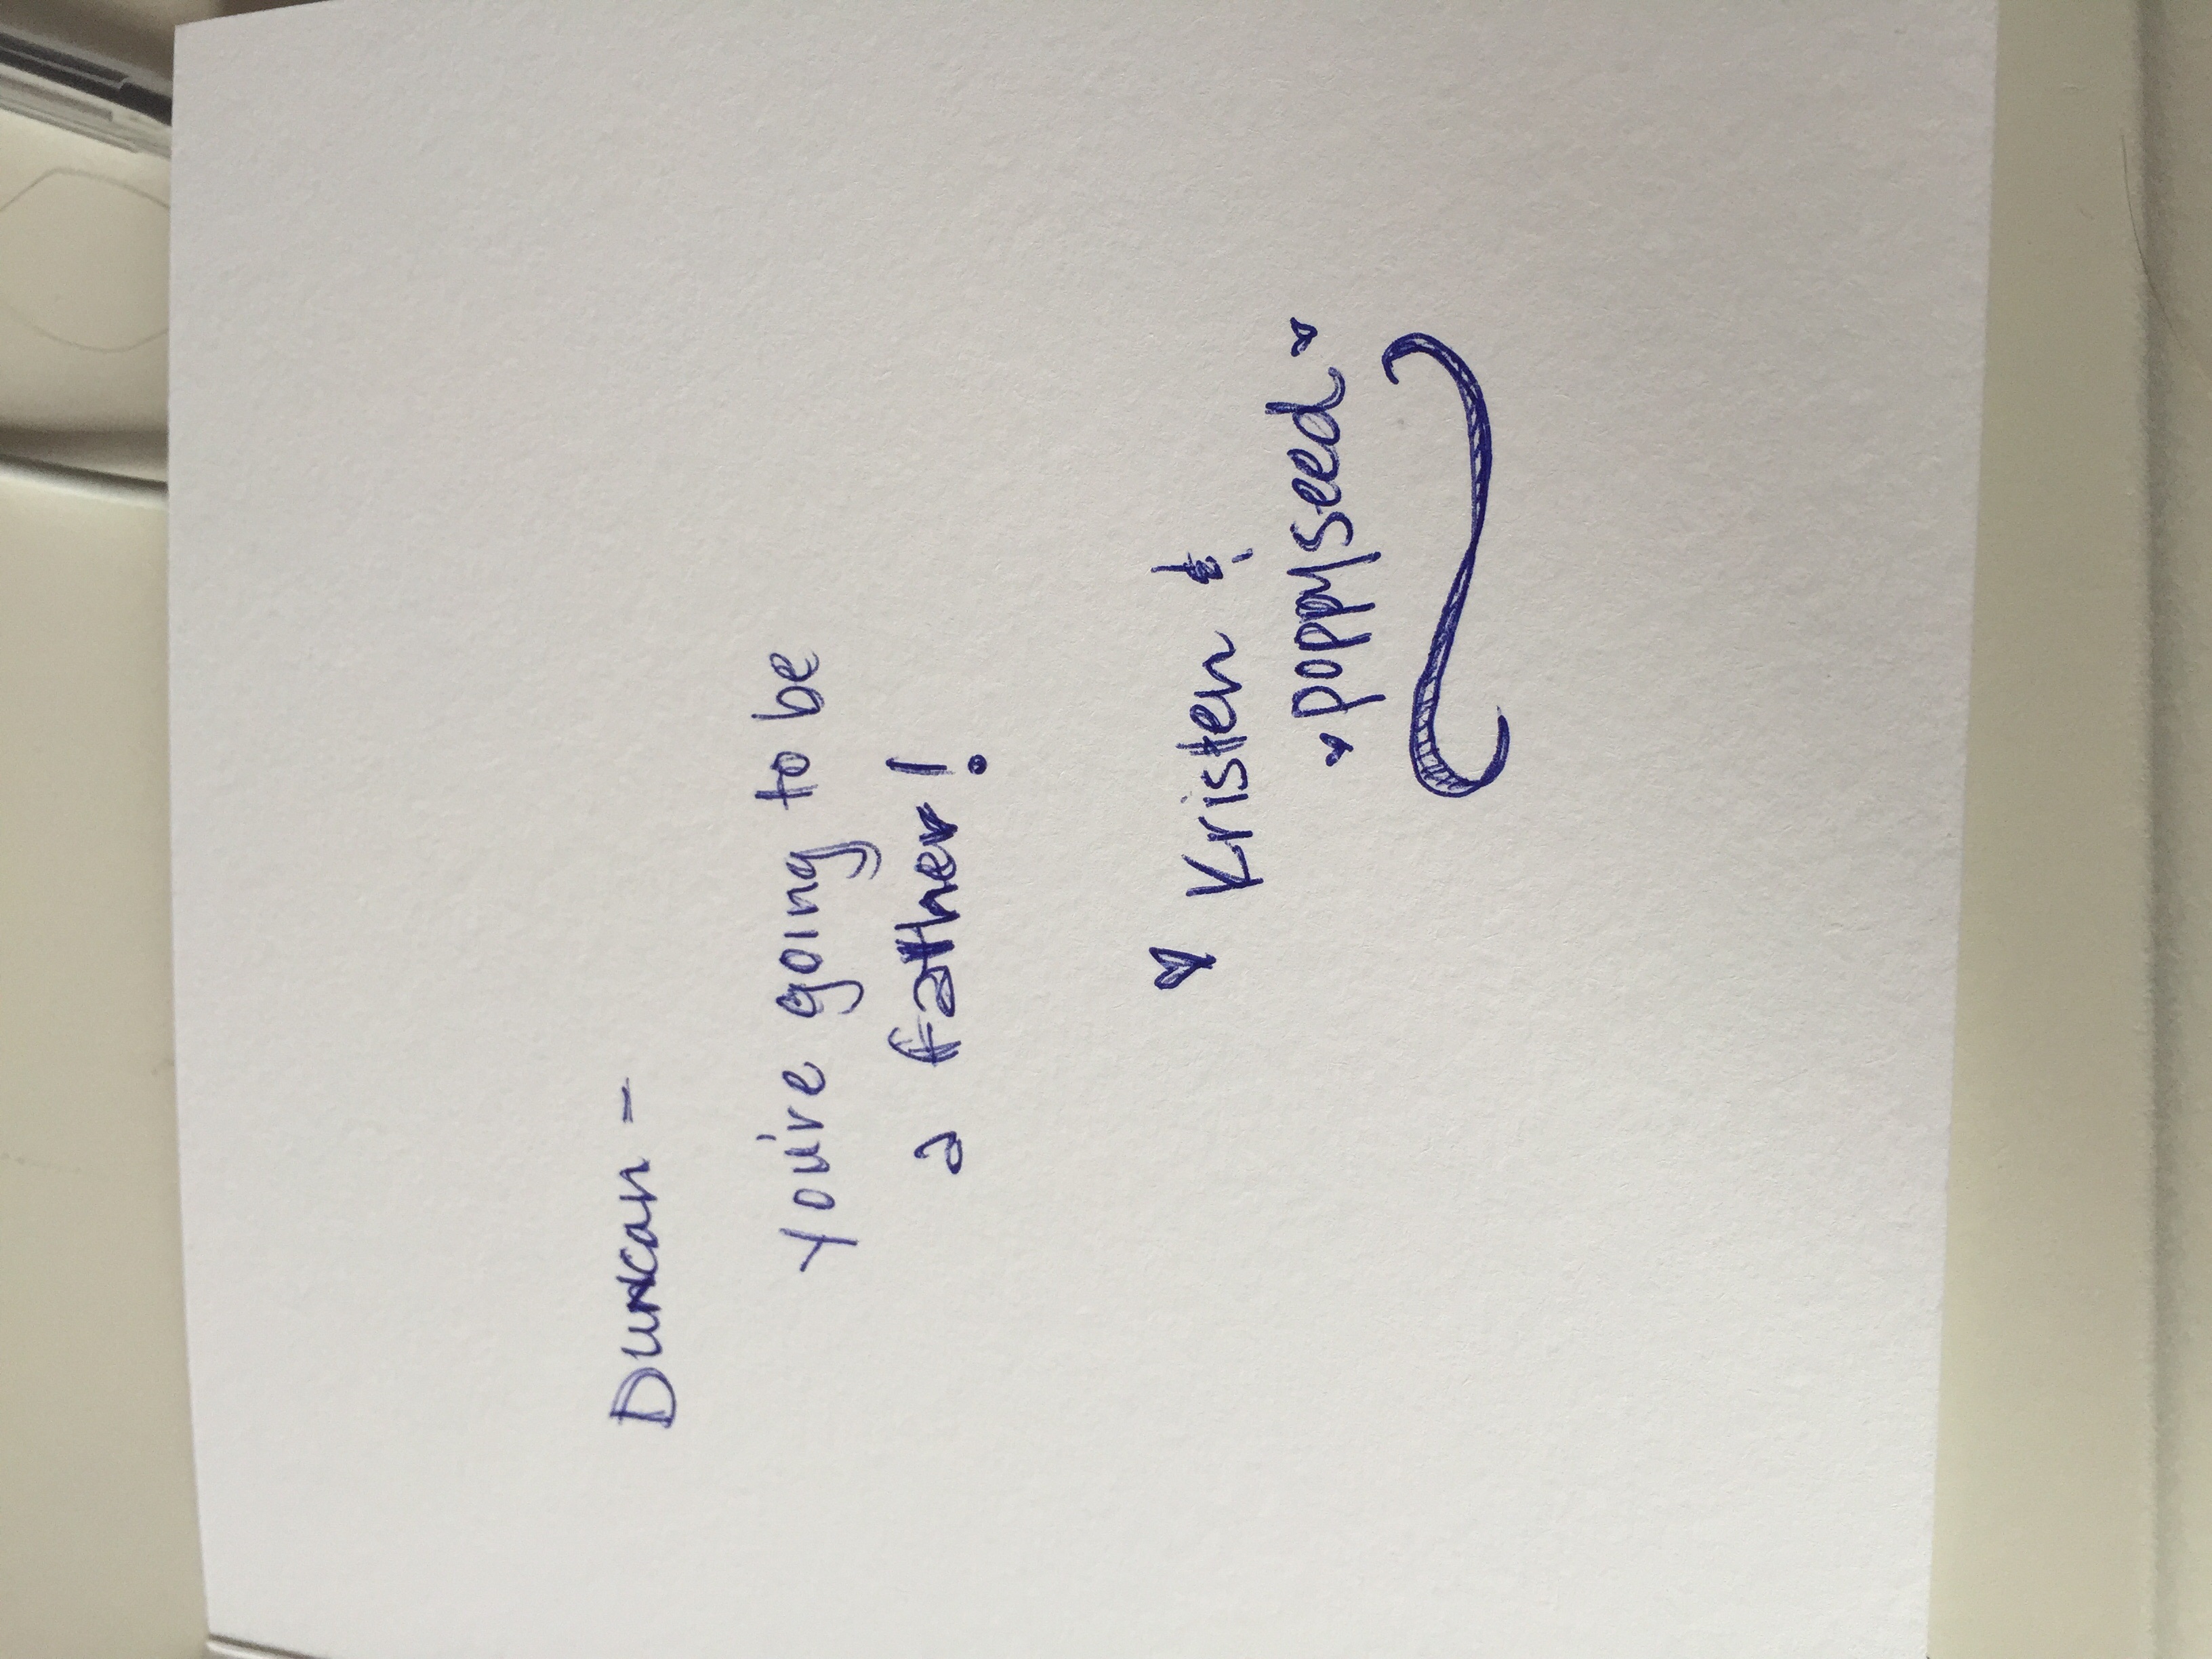 Duncan -
You're going to be
a father!
♥ Kristen &
♥ poppyseed ♥